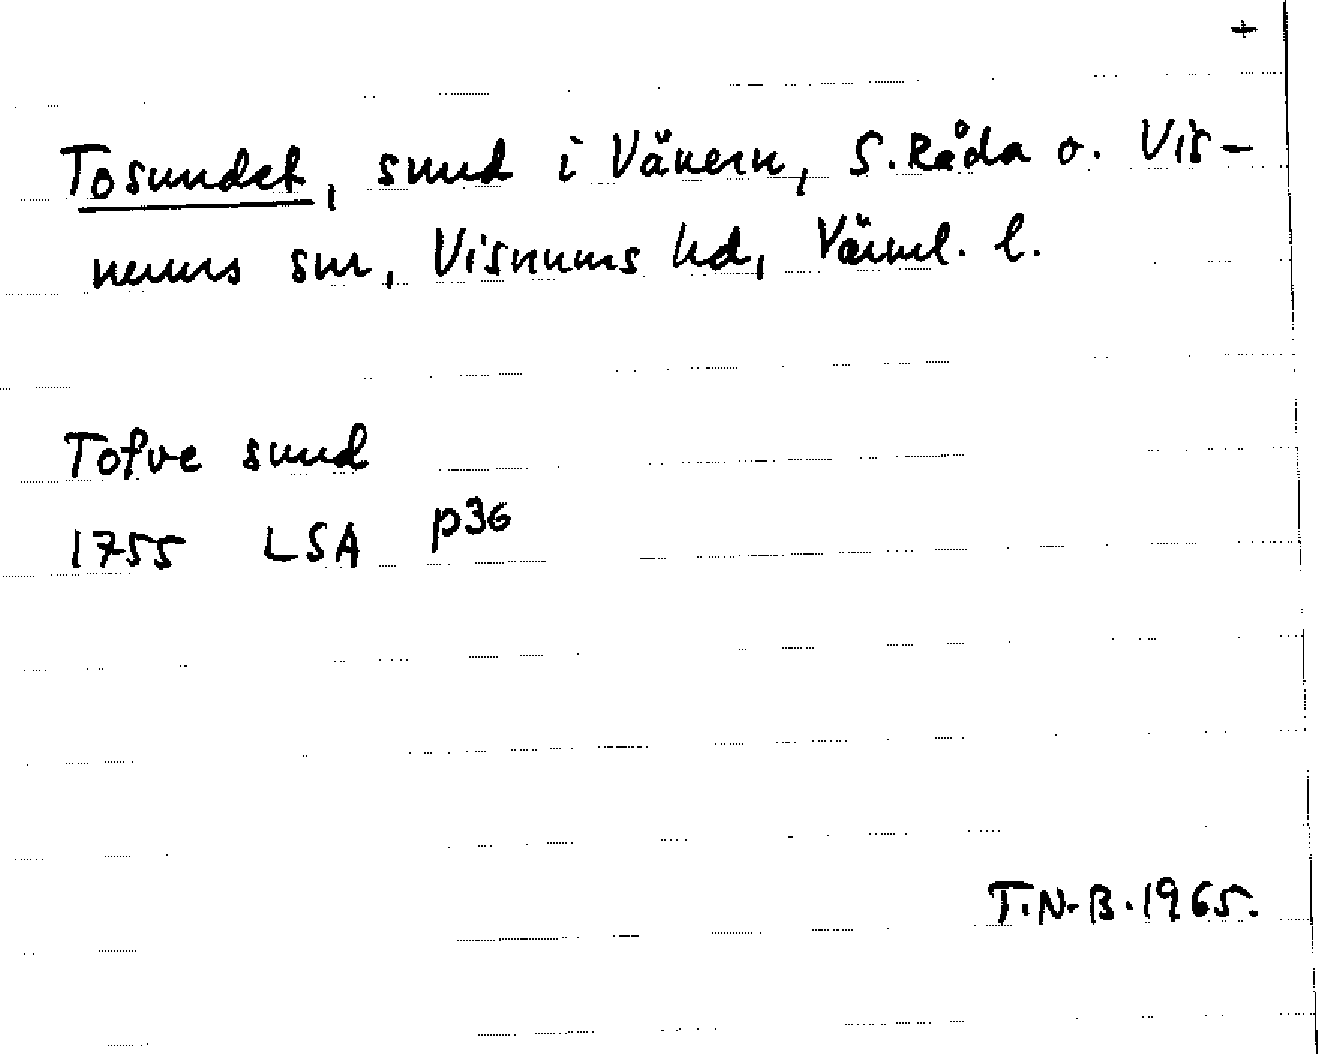 +
Tosundet, sund i Vänern, S. Råda o. Vis-
nums snr, Visnums hd, Värml. l.
Tofve sund
1755 LSA p36
T.N.B. 1965.